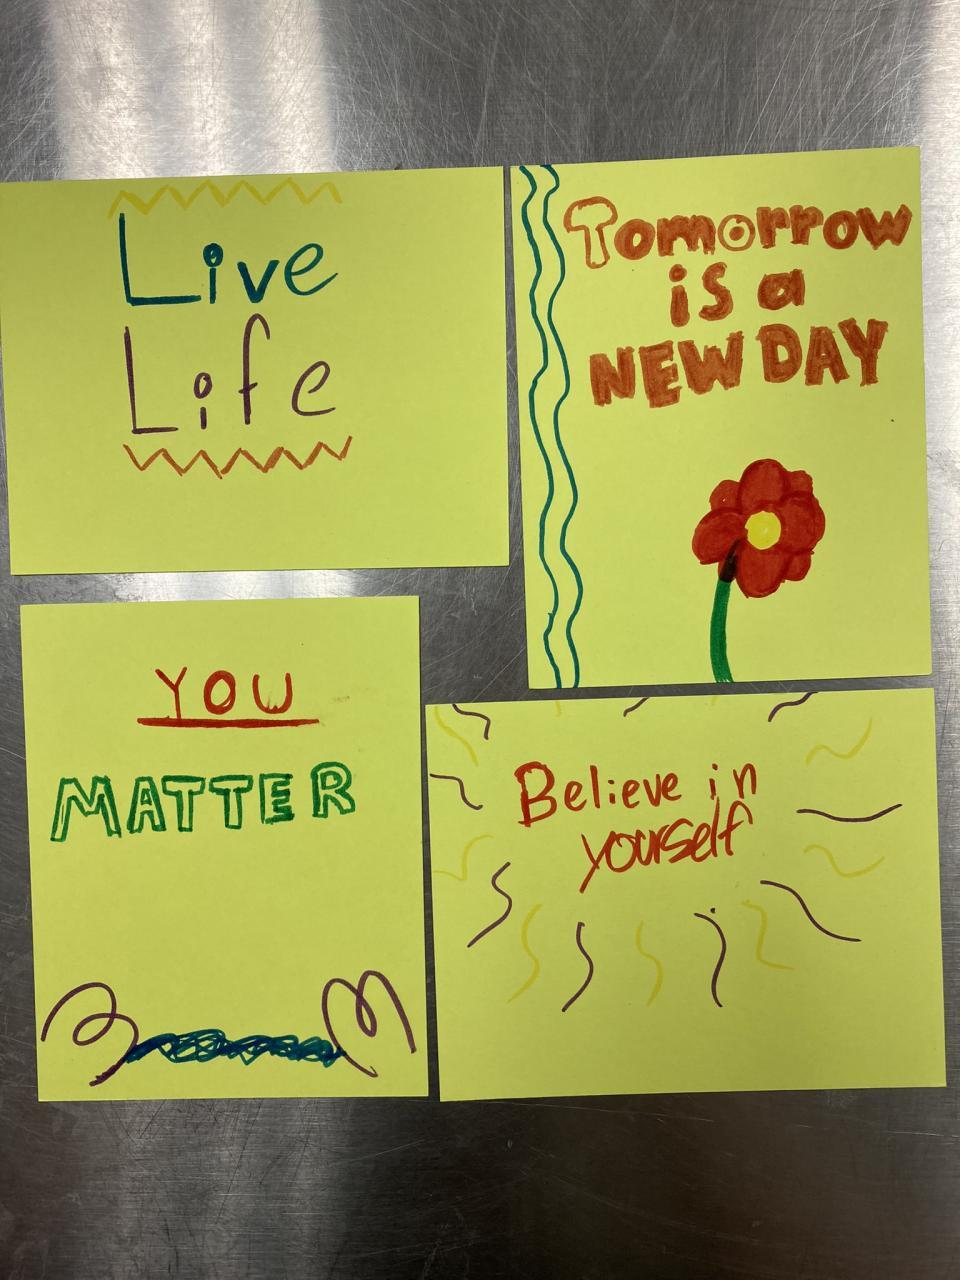 Live
Life
Tomorrow
is a
NEW DAY
YOU
MATTER
Believe in
yourself